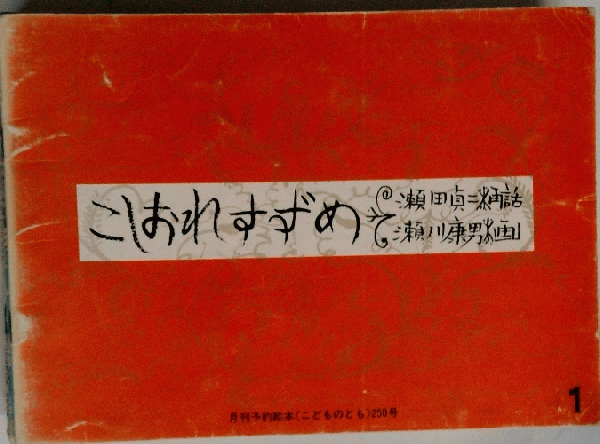 こしおれすずめ
瀬田貞二再話
瀬川康男画
月刊予約絵本〈こどものとも〉258号
1